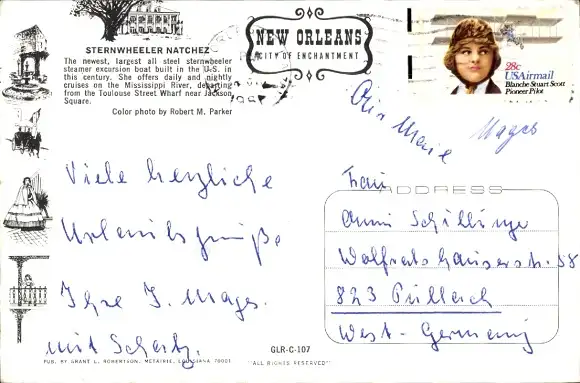 STERNWHEELER NATCHEZ
The newest, largest all steel sternwheeler
steamer excursion boat built in the U.S. in
this century. She offers daily and nightly
cruises on the Mississippi River, departing
from the Toulouse Street Wharf near Jackson
Square.
Color photo by Robert M. Parker
NEW ORLEANS
CITY OF ENCHANTMENT
28c
USAirmail
Blanche Stuart Scott
Pioneer Pilot
Marie Mages
Viele herzliche
Urlaubsgrüße
Ihre J. Mages.
mit Schatz.
ADDRESS
Frau
Anni Schillinge
Wolfratshauserstr. 58
823 Pullach
West-Germany
GLR-C-107
PUB. BY GRANT L. ROBERTSON, METAIRIE, LOUISIANA 70001
"ALL RIGHTS RESERVED"